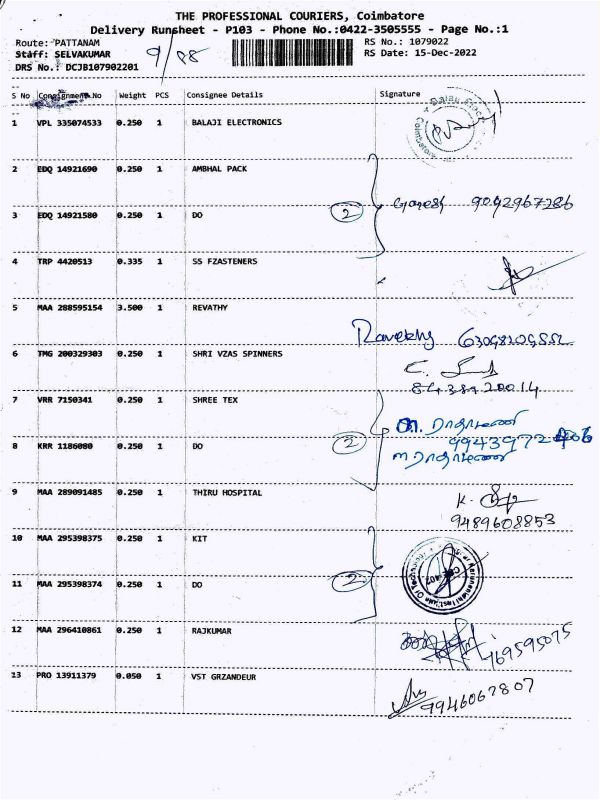 THE PROFESSIONAL COURIERS, Coimbatore
Delivery Runsheet - P103 - Phone No.:0422-3505555 - Page No.:1
Route: PATTANAM RS No.: 1079022
Staff: SELVAKUMAR RS Date: 15-Dec-2022
DRS No.: DCJB107902201
S No Consignment No Weight PCS Consignee Details Signature
1 VPL 335074533 0.250 1 BALAJI ELECTRONICS
2 EDQ 14921690 0.250 1 AMBHAL PACK
Ganesh 9042967286
2
3 EDQ 14921580 0.250 1 DO
4 TRP 4420513 0.335 1 SS FZASTENERS
5 MAA 288595154 3.500 1 REVATHY
Revathy
6 TMG 200329303 0.250 1 SHRI VZAS SPINNERS
8438920014
7 VRR 7150341 0.250 1 SHREE TEX
2
8 KRR 1186080 0.250 1 DO
9 MAA 289091485 0.250 1 THIRU HOSPITAL
9489608853
10 MAA 295398375 0.250 1 KIT
2
11 MAA 295398374 0.250 1 DO
12 MAA 296410861 0.250 1 RAJKUMAR
13 PRO 13911379 0.050 1 VST GRZANDEUR
9946067807